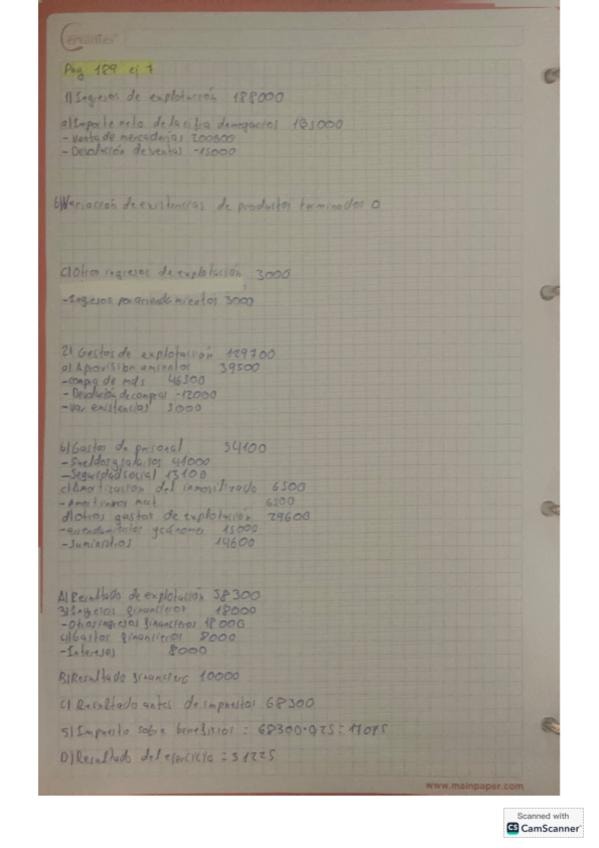 Pag 189 ej 7
1) Ingresos de explotación 188000
a) Importe neto de la cifra de negocios 185000
- Venta de mercaderías 200000
- Devolución de ventas -15000
b) Variación de existencias de productos terminados 0
c) Otros ingresos de explotación 3000
- Ingresos por arrendamientos 3000
2) Gastos de explotación 129700
a) Aprovisionamientos 39500
- compra de mds 46500
- Devolución de compras -12000
- Var existencias 5000
b) Gastos de personal 54100
- Sueldos y salarios 41000
- Seguridad social 13100
c) Amortización del inmovilizado 6500
- Amort inmov mat 6500
d) Otros gastos de explotación 29600
- arrendamientos y cánones 15000
- Suministros 14600
A) Resultado de explotación 58300
3) Ingresos financieros 18000
- Otros ingresos financieros 18000
Gastos financieros 8000
- Intereses 8000
B) Resultado financiero 10000
C) Resultado antes de impuestos 68300
5) Impuesto sobre beneficios = 68300·0,25 = 17075
D) Resultado del ejercicio = 51225
www.mainpaper.com
Scanned with
CS CamScanner